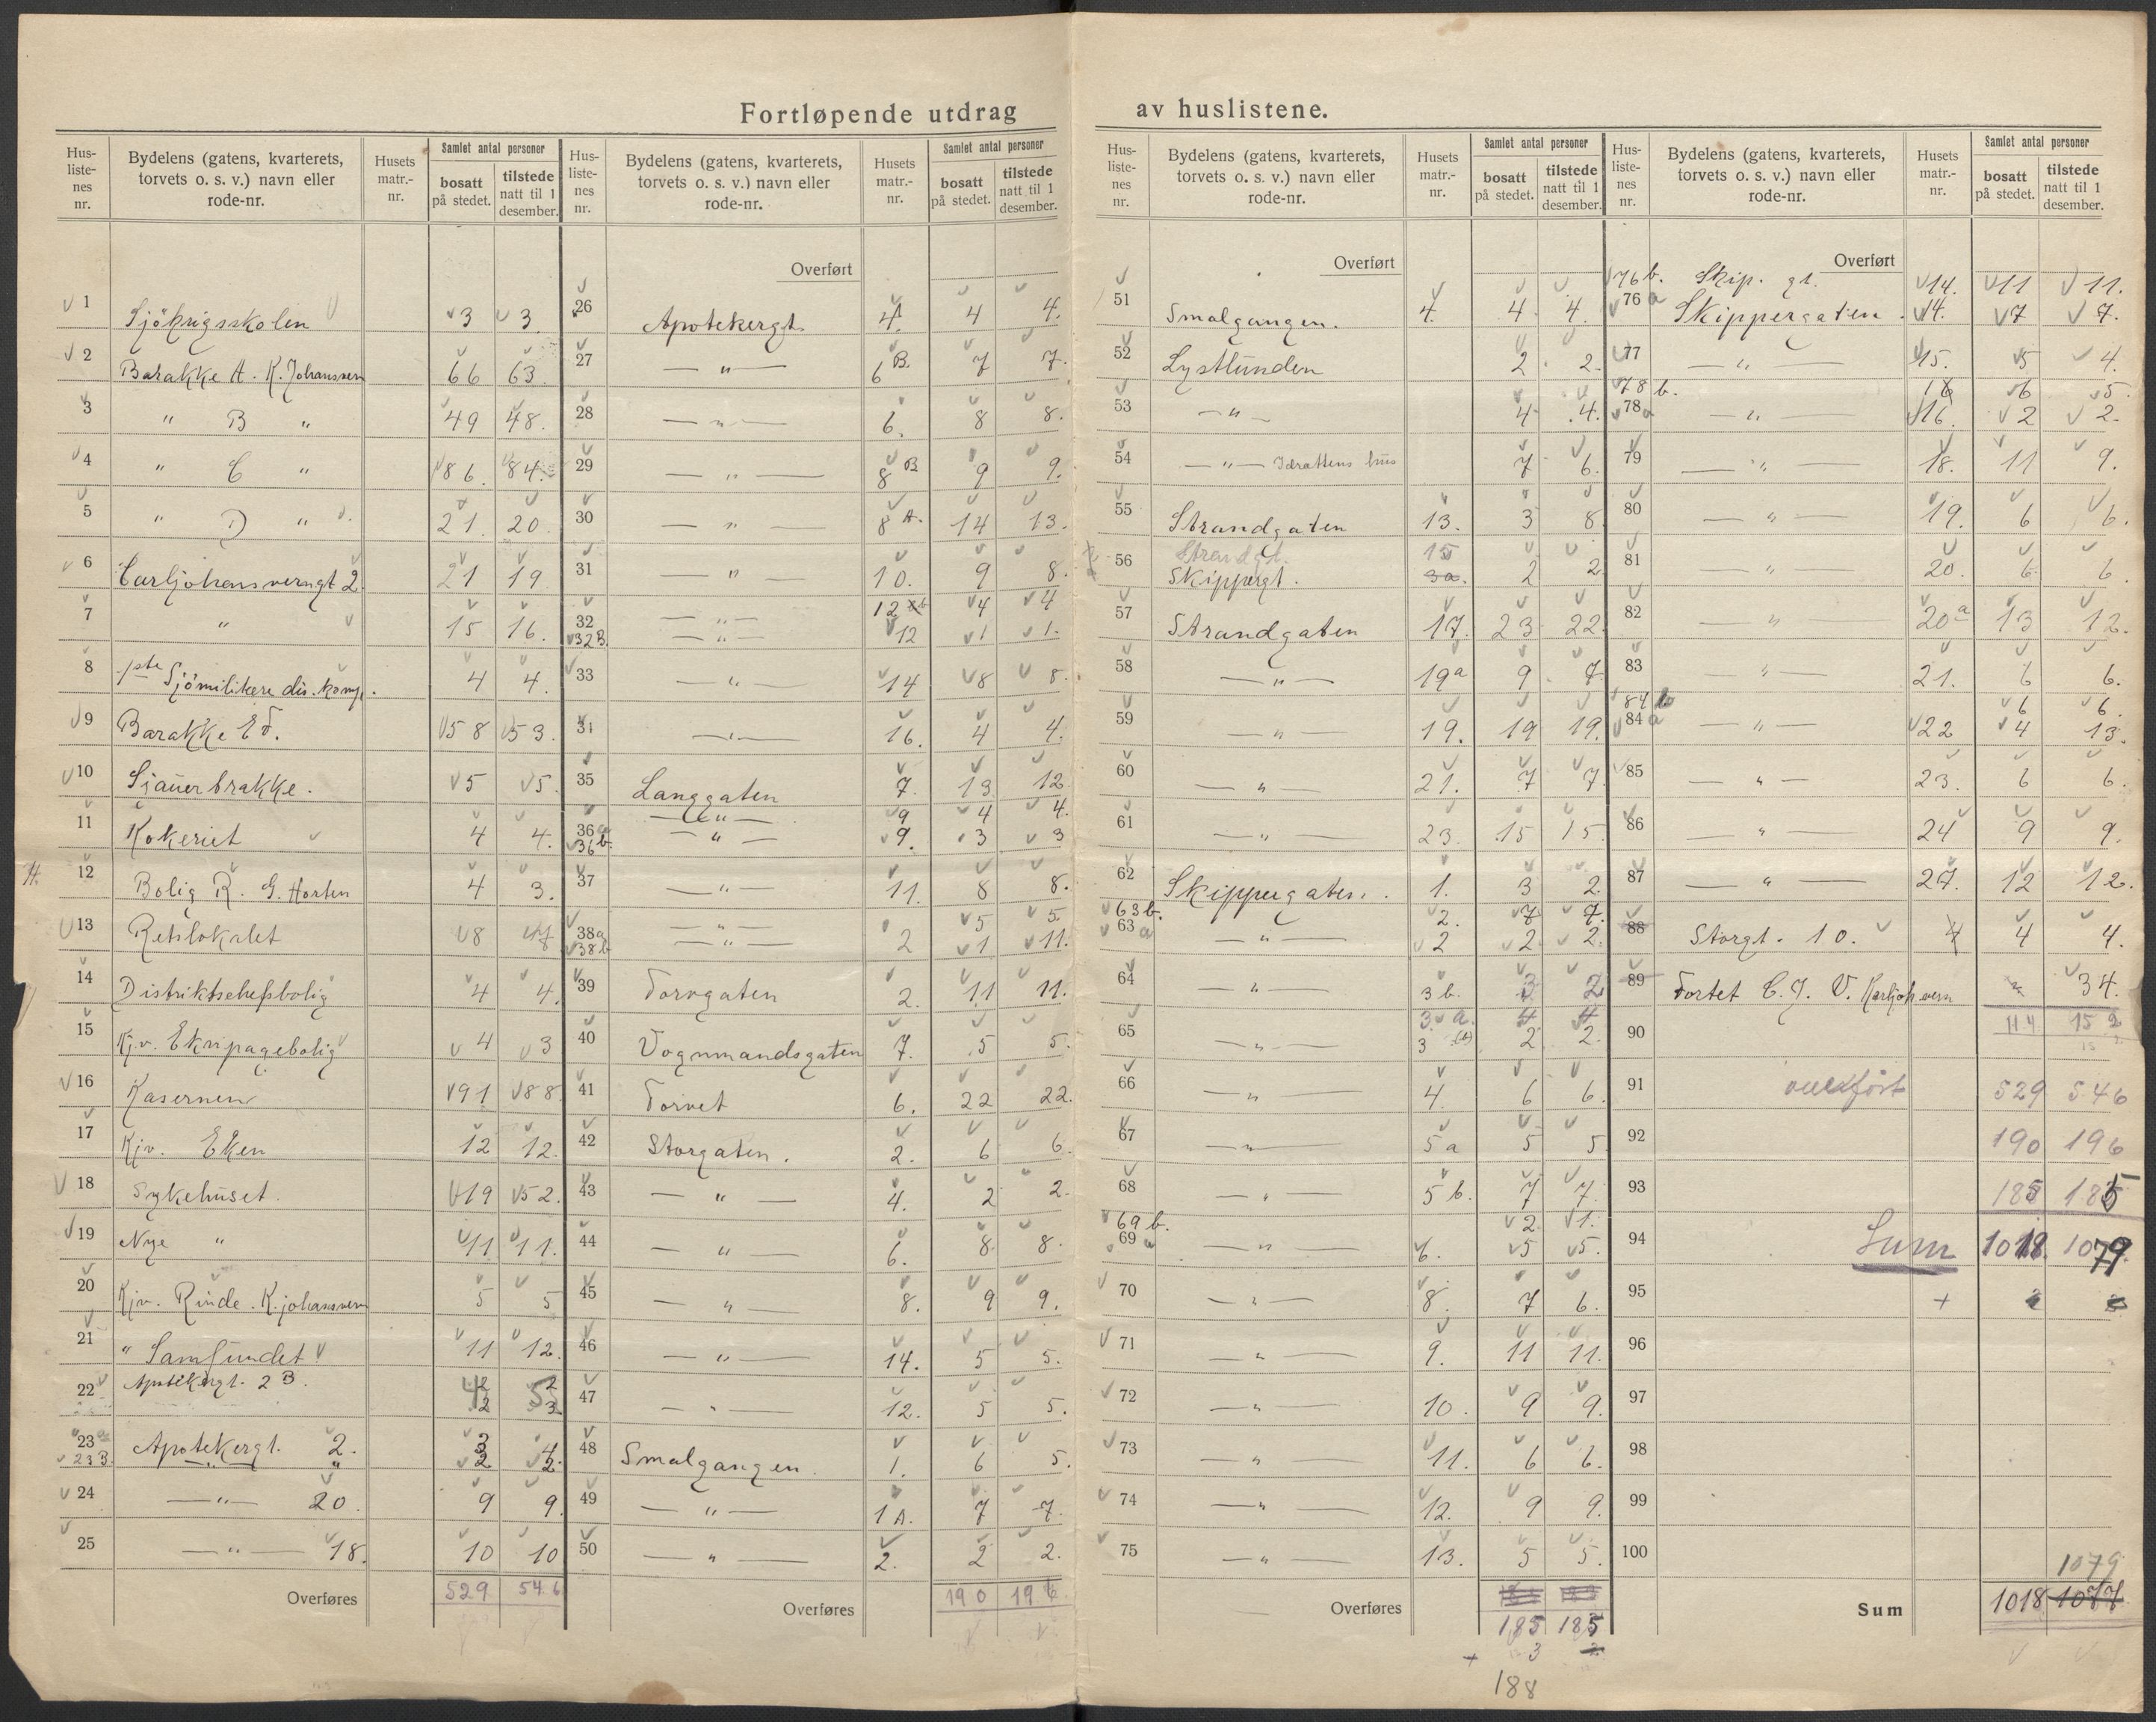 Fortløpende utdrag av huslistene.
Hus-liste-nes nr. | Bydelens (gatens, kvarterets, torvets o. s. v.) navn eller rode-nr. | Husets matr.-nr. | Samlet antal personer | bosatt på stedet. | tilstede natt til 1 desember.
1 Sjökrigsskolen 3 3.
2 Barakke A. K. Johansvern 66 63.
3 " B " 49 48.
4 " C " 86. 84.
5 " D " 21. 20.
6 Carljohansverngt 2. 21 19.
7 " 15 16.
8 1ste Sjömilitære dis. komp. 4 4.
9 Barakke E 58 53.
10 Sjauerbrakke. 5 5.
11 Kokeriet 4 4.
H. 12 Bolig R. G. Horten 4 3.
13 Retslokalet 8
14 Distriktschefsbolig 4 4.
15 Kj.v. Ekvipagebolig 4 3
16 Kasernen 91. 88.
17 Kjv. Eken 12 12.
18 Sykehuset. 19 52.
19 Nye " 11 11.
20 Kjv. Rinde. K.johansvern 5 5
21 " Samfundet 11 12.
22 Apotekergt. 2 B.
23 a Apotekergt. 2.
23 B. " "
24 — " — 20. 9 9.
25 — " — 18. 10 10
Overføres 529 546
Overført
26 Apotekergt. 4. 4 4.
27 — " — 6 B. 7 7.
28 — " — 6. 8 8.
29 — " — 8 B 9 9.
30 — " — 8 A. 14 13.
31 — " — 10. 9 8.
32 — " — 12 b 4 4
32 B. — " — 12 1 1.
33 — " — 14 8 8.
34 — " — 16. 4 4.
35 Langgaten 7. 13 12
36 a — " — 9 4 4.
36 b. — " — 9. 3 3
37 — " — 11. 8 8.
38 a — " — 5 5.
38 b — " — 2 1 11.
39 Torvgaten 2. 11 11.
40 Vognmandsgaten 7. 5 5.
41 Torvet 6. 22 22.
42 Storgaten. 2. 6 6.
43 — " — 4. 2 2.
44 — " — 6. 8 8.
45 — " — 8. 9 9.
46 — " — 14. 5 5.
47 — " — 12. 5 5.
48 Smalgangen. 1. 6 5.
49 — " — 1 A. 7 7.
50 — " — 2. 2 2.
Overføres 190 196
Overført
51 Smalgangen. 4. 4 4.
52 Lystlunden 2 2.
53 — " — 4 4.
54 — " — Idrættens hus 7 6.
55 Strandgaten 13. 3 8
Strandgt. 15
56 Skippergt. 3a. 2 2
57 Strandgaten 17. 23 22.
58 — " — 19a 9 7.
59 — " — 19. 19 19.
60 — " — 21. 7 7
61 — " — 23. 15 15
62 Skippergaten. 1. 3 2.
63 b. 2. 7 7.
63 a — " — 2 2 2.
64 — " — 3 b. 3 2
3. a. 4 4
65 — " — 3 2 2.
66 — " — 4. 6 6.
67 — " — 5 a 5 5
68 — " — 5 b. 7 7.
69 b. 2. 1.
69 a — " — 6. 5 5.
70 — " — 8. 7 6.
71 — " — 9. 11 11.
72 — " — 10. 9 9.
73 — " — 11. 6 6.
74 — " — 12. 9 9.
75 — " — 13. 5 5.
Overføres
185 185
+ 3
188
Overført
76 b. Skip. gt. 14. 11 11.
76 a Skippergaten. 14. 7 7.
77 — " — 15. 5 4.
78 b. 16 6 5.
78 a — " — 16. 2 2.
79 — " — 18. 11 9.
80 — " — 19. 6 6.
81 — " — 20. 6 6.
82 — " — 20 a 13 12.
83 — " — 21. 6 6.
84 b 6 6.
84 a — " — 22 4 13.
85 — " — 23. 6 6.
86 — " — 24 9 9.
87 — " — 27. 12 12.
88 Storgt. 10. 4 4 4.
89 Fortet C. J. V. Karljoh.vern 34.
114 152
90
91 overført 529 546
92 190 196
93 185 185
94 Sum 1018. 1079.
95 +
96
97
98
99
100
1079
Sum 1018 1077